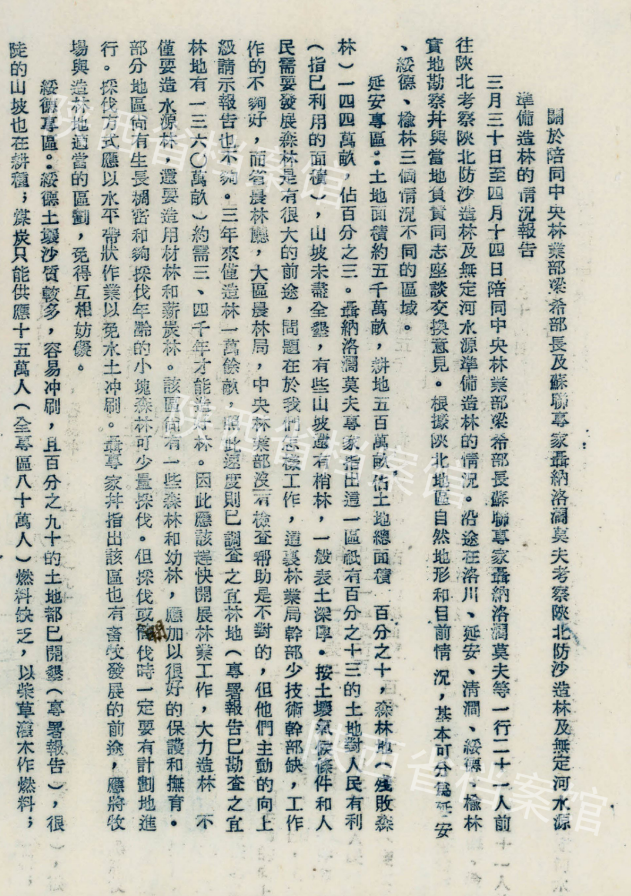 關於陪同中央林業部梁希部長及蘇聯專家聶納洛闊莫夫考察陝北防沙造林及無定河水源
準備造林的情況報告
三月三十日至四月十四日陪同中央林業部梁希部長蘇聯專家聶納洛闊莫夫等一行二十一人前
往陝北考察陝北防沙造林及無定河水源準備造林的情況。沿途在洛川、延安、清澗、綏德、榆林
實地勘察幷與當地負責同志座談交換意見。根據陝北地區自然地形和目前情況，基本可分爲延安
、綏德、榆林三個情況不同的區域。
延安專區：土地面積約五千萬畝，耕地五百萬畝佔土地總面積 百分之十，森林地（殘敗森
林）一四四萬畝 佔百分之三。聶納洛闊莫夫專家指出這一區祇有百分之十三的土地對人民有利
（指已利用的面積），山坡未盡全墾，有些山坡還有梢林，一般表土深厚。按土壤氣候條件和人
民需要發展森林是有很大的前途，問題在於我們怎樣工作，這裏林業局幹部少技術幹部缺，工作
作的不夠好，而省農林廳，大區農林局，中央林業部沒有檢查幫助是不對的，但他們主動的向上
級請示報告也不夠。三年來僅造林一萬餘畝，照此速度則已調查之宜林地（專署報告已勘查之宜
林地有一三六〇萬畝）約需三、四千年才能造好林。因此應該趕快開展林業工作，大力造林 不
僅要造水源林 還要造用材林和薪炭林。該區尚有一些森林和幼林，應加以很好的保護和撫育。
部分地區尚有生長稠密和夠採伐年齡的小塊森林可少量採伐。但採伐或間伐時一定要有計劃地進
行。採伐方式應以水平帶狀作業以免水土冲刷。聶專家幷指出該區也有畜牧發展的前途，應將牧
場與造林地適當的區劃，免得互相妨礙。
綏德專區。綏德土壤沙質較多，容易冲刷，且百分之九十的土地都已開墾（專署報告），很
陡的山坡也在耕種；煤炭只能供應十五萬人（全專區八十萬人）燃料缺乏，以柴草灌木作燃料；
陕西省档案馆
陕西省档案馆
陕西省档案馆